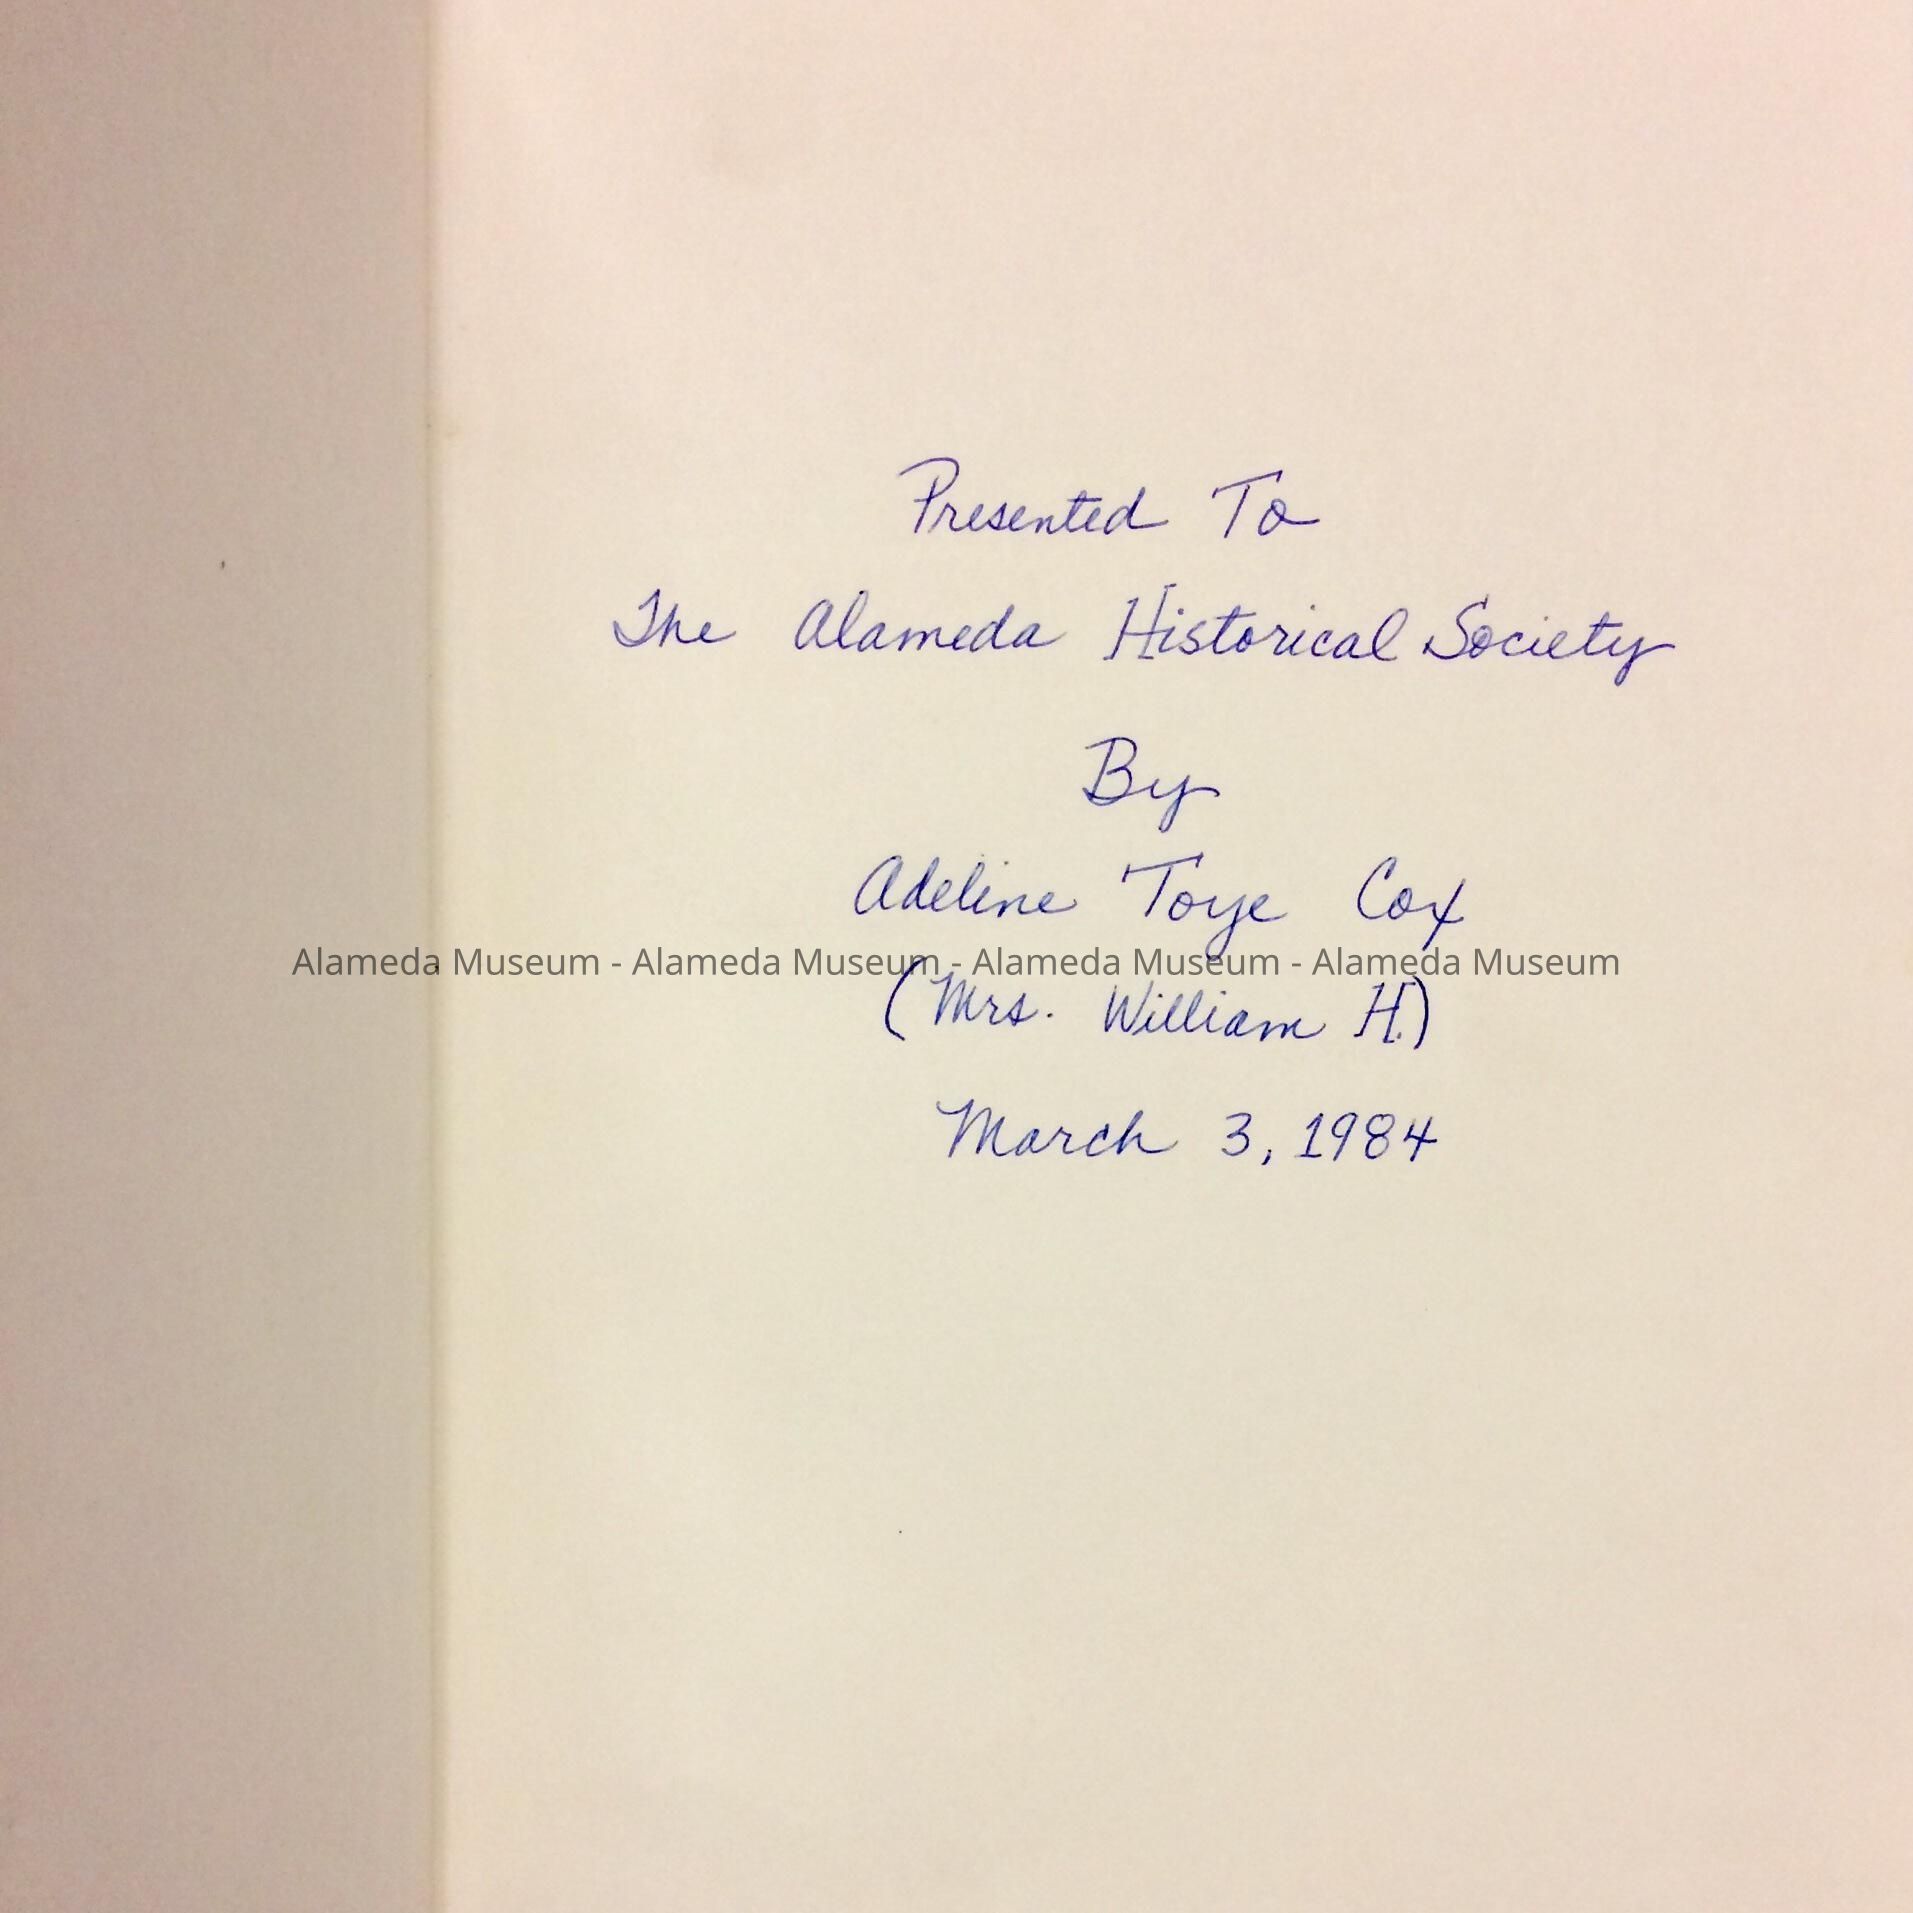 Presented To
The Alameda Historical Society
By
Adeline Toye Cox
Alameda Museum - Alameda Museum - Alameda Museum - Alameda Museum
(Mrs. William H.)
March 3, 1984